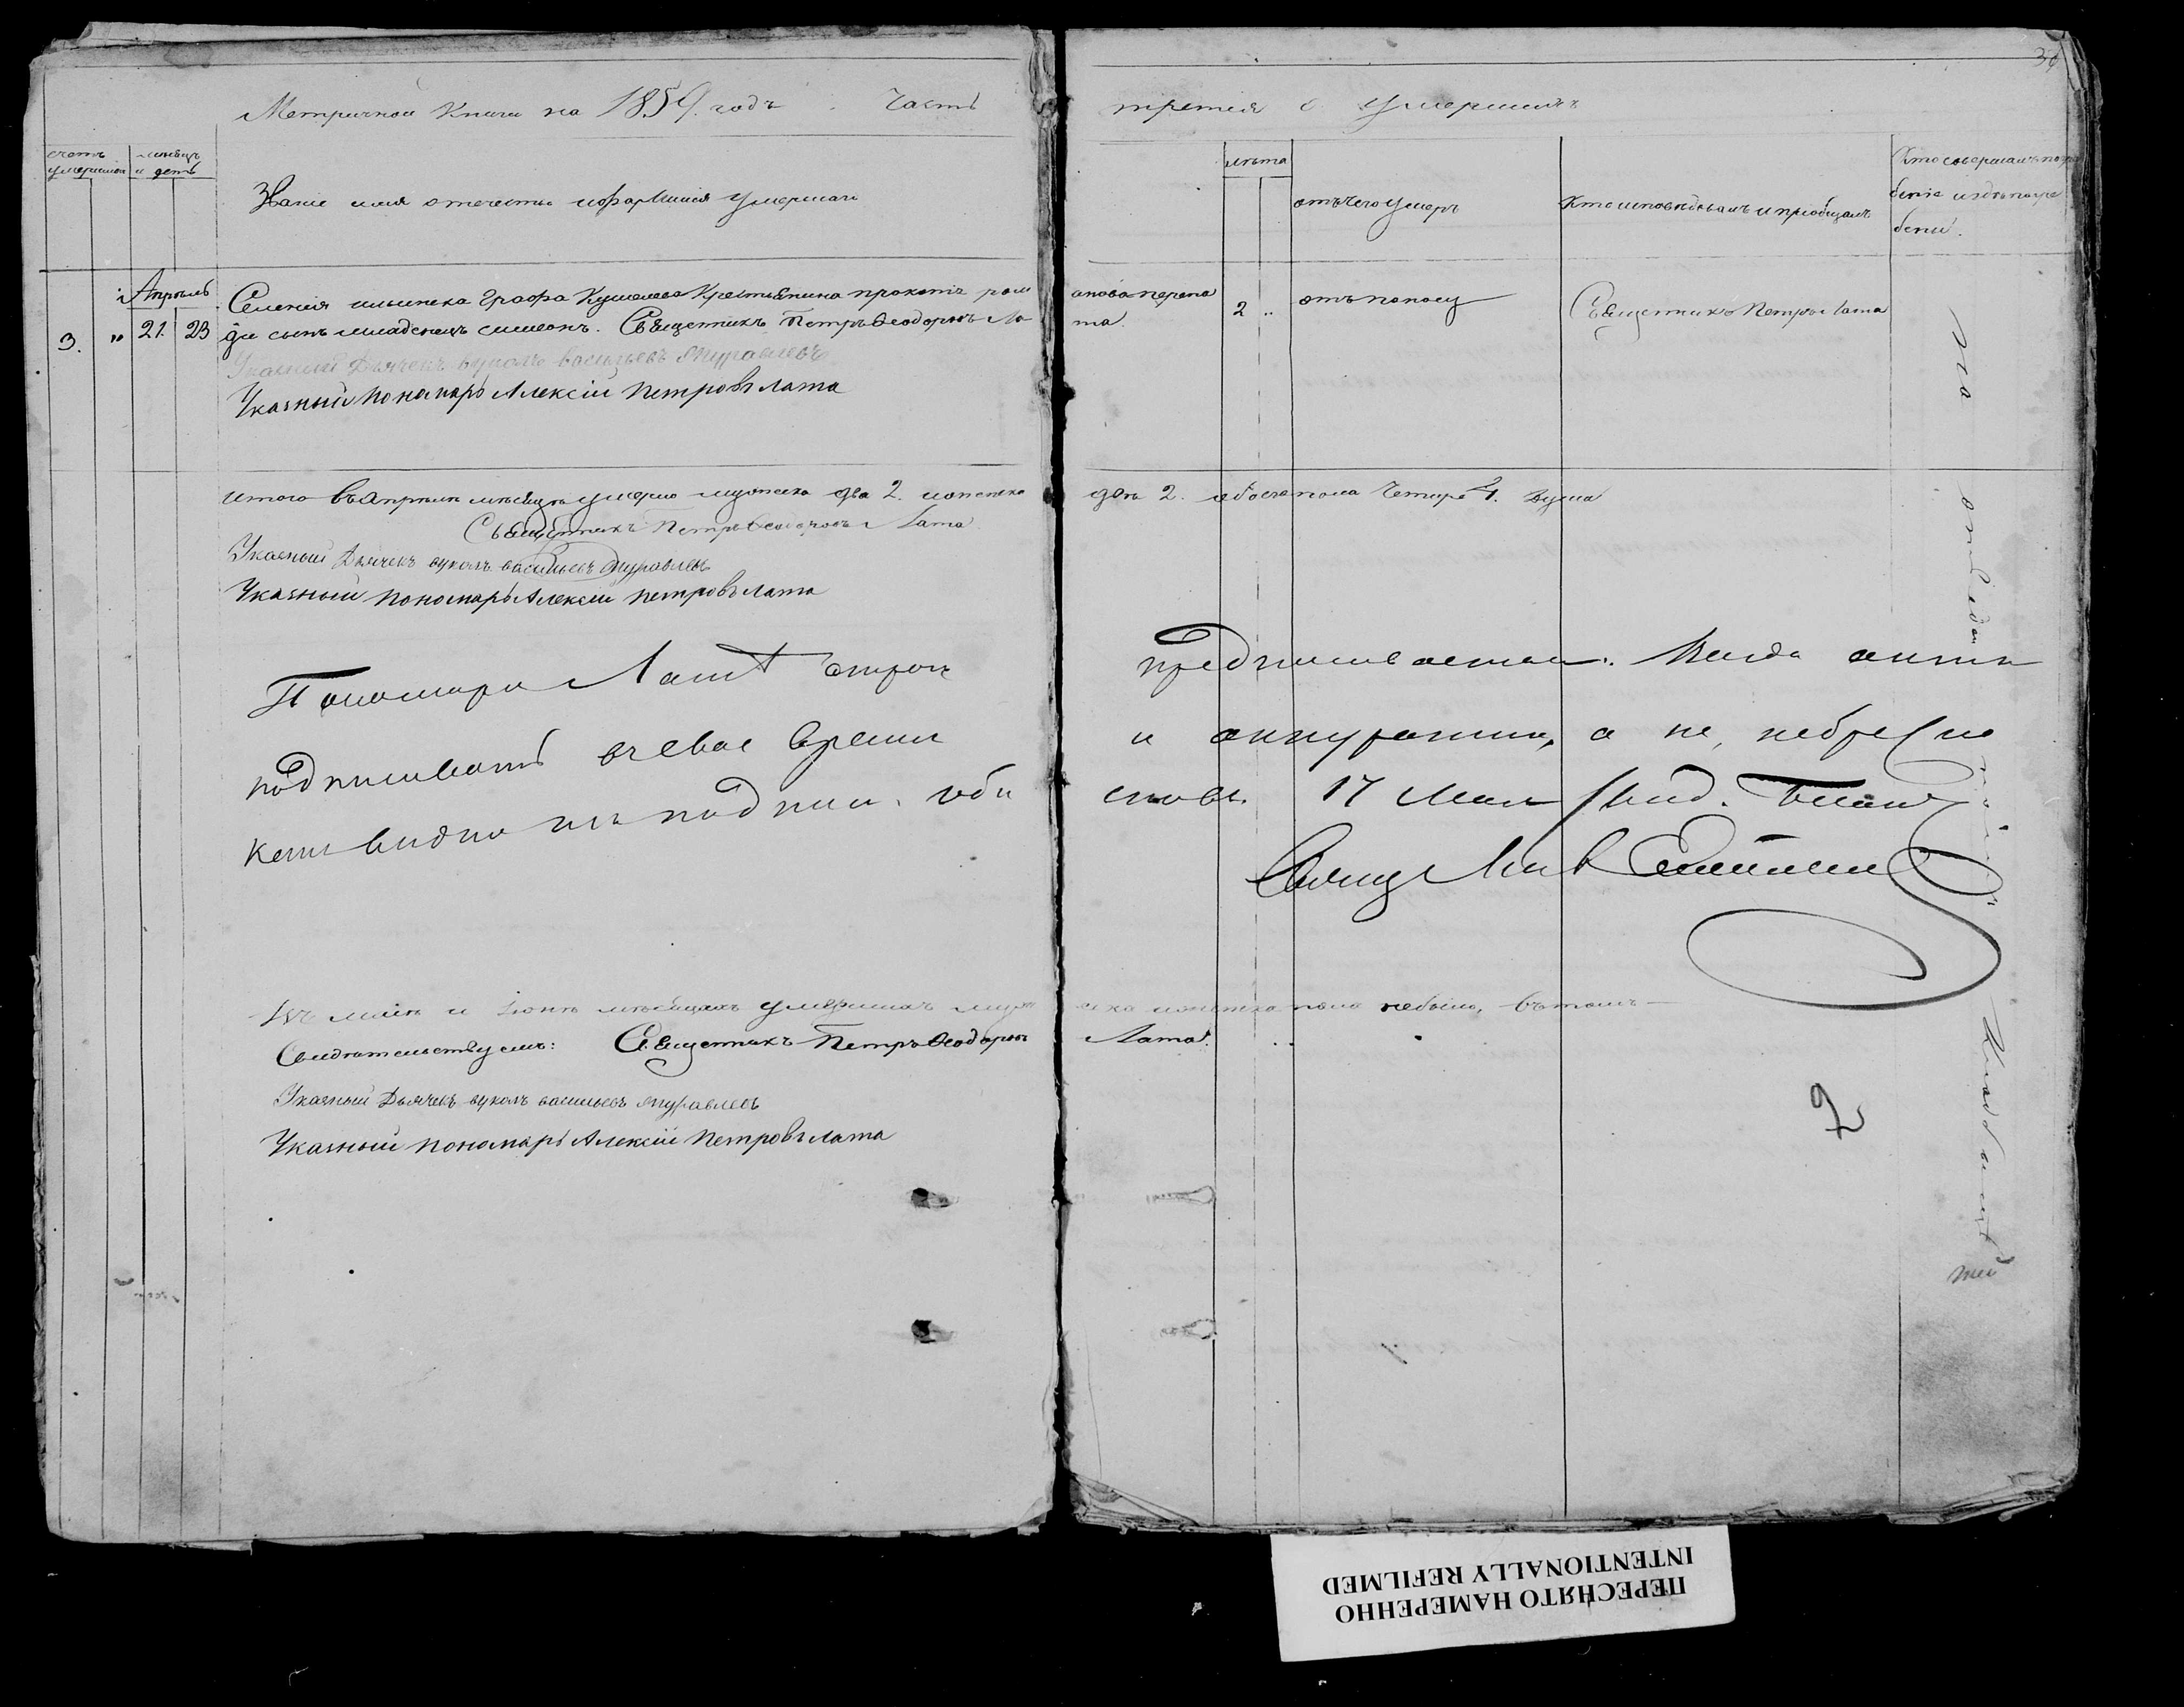 34
Метричной Книги на 1859. годъ. Часть третія о умершихъ
счетъ умершихъ
мѣсяцъ и день
Званіе имя отечество и фамилия умершаго
лѣта
отъ чего умеръ
Кто исповѣдывалъ и приобщалъ
Кто совершалъ погребеніе и гдѣ погребены.
Апрѣль
3. " 21. 23
Селенія ильинска Графа Кушелева Крестьянина прокопія ром
анова
ди сынъ младенецъ симеонъ. Священникъ Петръ Ѳеодоровъ Ла
та.
2 "
отъ поносу
Священникъ Петръ Лата
Указный Дьячекъ вуколъ васильевъ журавлевъ
Указный пономарь Алексій Петровъ Лата
на
итого въ апрѣлѣ мѣсяцѣ умерло мужеска два 2. и женска двѣ 2. обоего пола четыре 4. душа
Священникъ Петръ Ѳеодоровъ Лата
Указный Дьячекъ вуколъ васильевъ журавлевъ
Указный пономарь Алексій Петровъ Лата
Пономарю Лата строго предписывается: всегда акты
подписывать въ свое время и аккуратно, а не небрежно
какъ видно изъ подписи. 17 Мая
Въ маіѣ и іюнѣ мѣсяцахъ умершихъ мужеска и женска пола небыло, въ томъ
Свидѣтельствуемъ: Священникъ Петръ Ѳеодоровъ Лата.
Указный Дьячекъ вуколъ васильевъ журавлевъ
Указный пономарь Алексій Петровъ Лата
2
ПЕРЕСНЯТО НАМЕРЕННО
INTENTIONALLY REFILMED